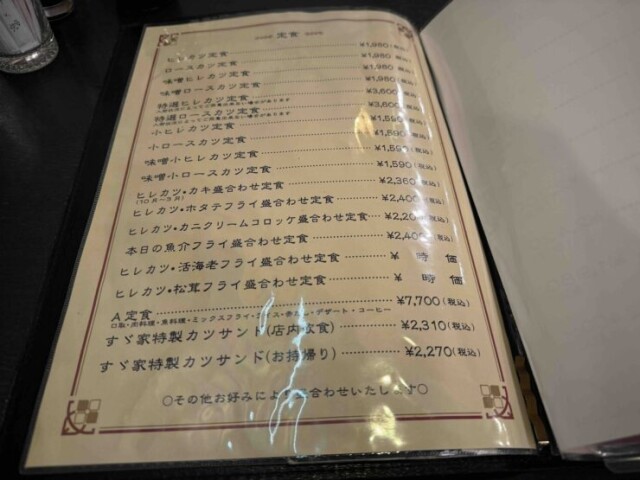 定食
ヒレカツ定食 ¥1,980(税込)
ロースカツ定食 ¥1,980(税込)
味噌ヒレカツ定食 ¥1,980(税込)
味噌ロースカツ定食 ¥1,980(税込)
特選ヒレカツ定食 ¥3,600(税込)
特選ロースカツ定食 ¥3,600(税込)
小ヒレカツ定食 ¥1,590(税込)
小ロースカツ定食 ¥1,590(税込)
味噌小ヒレカツ定食 ¥1,590(税込)
味噌小ロースカツ定食 ¥1,590(税込)
ヒレカツ・カキ盛合わせ定食 ¥2,360(税込)
(10月~3月)
ヒレカツ・ホタテフライ盛合わせ定食 ¥2,400(税込)
ヒレカツ・カニクリームコロッケ盛合わせ定食 ¥2,20 (税込)
本日の魚介フライ盛合わせ定食 ¥2,400(税込)
ヒレカツ・活海老フライ盛合わせ定食 ¥ 時 価
ヒレカツ・松茸フライ盛合わせ定食 ¥ 時 価
A定食 ¥7,700(税込)
・肉料理・魚料理・ミックスフライ・ ・デザート・コーヒー
すゞ家特製カツサンド(店内飲食) ¥2,310(税込)
すゞ家特製カツサンド(お持帰り) ¥2,270(税込)
○その他お好みにより盛合わせいたします○